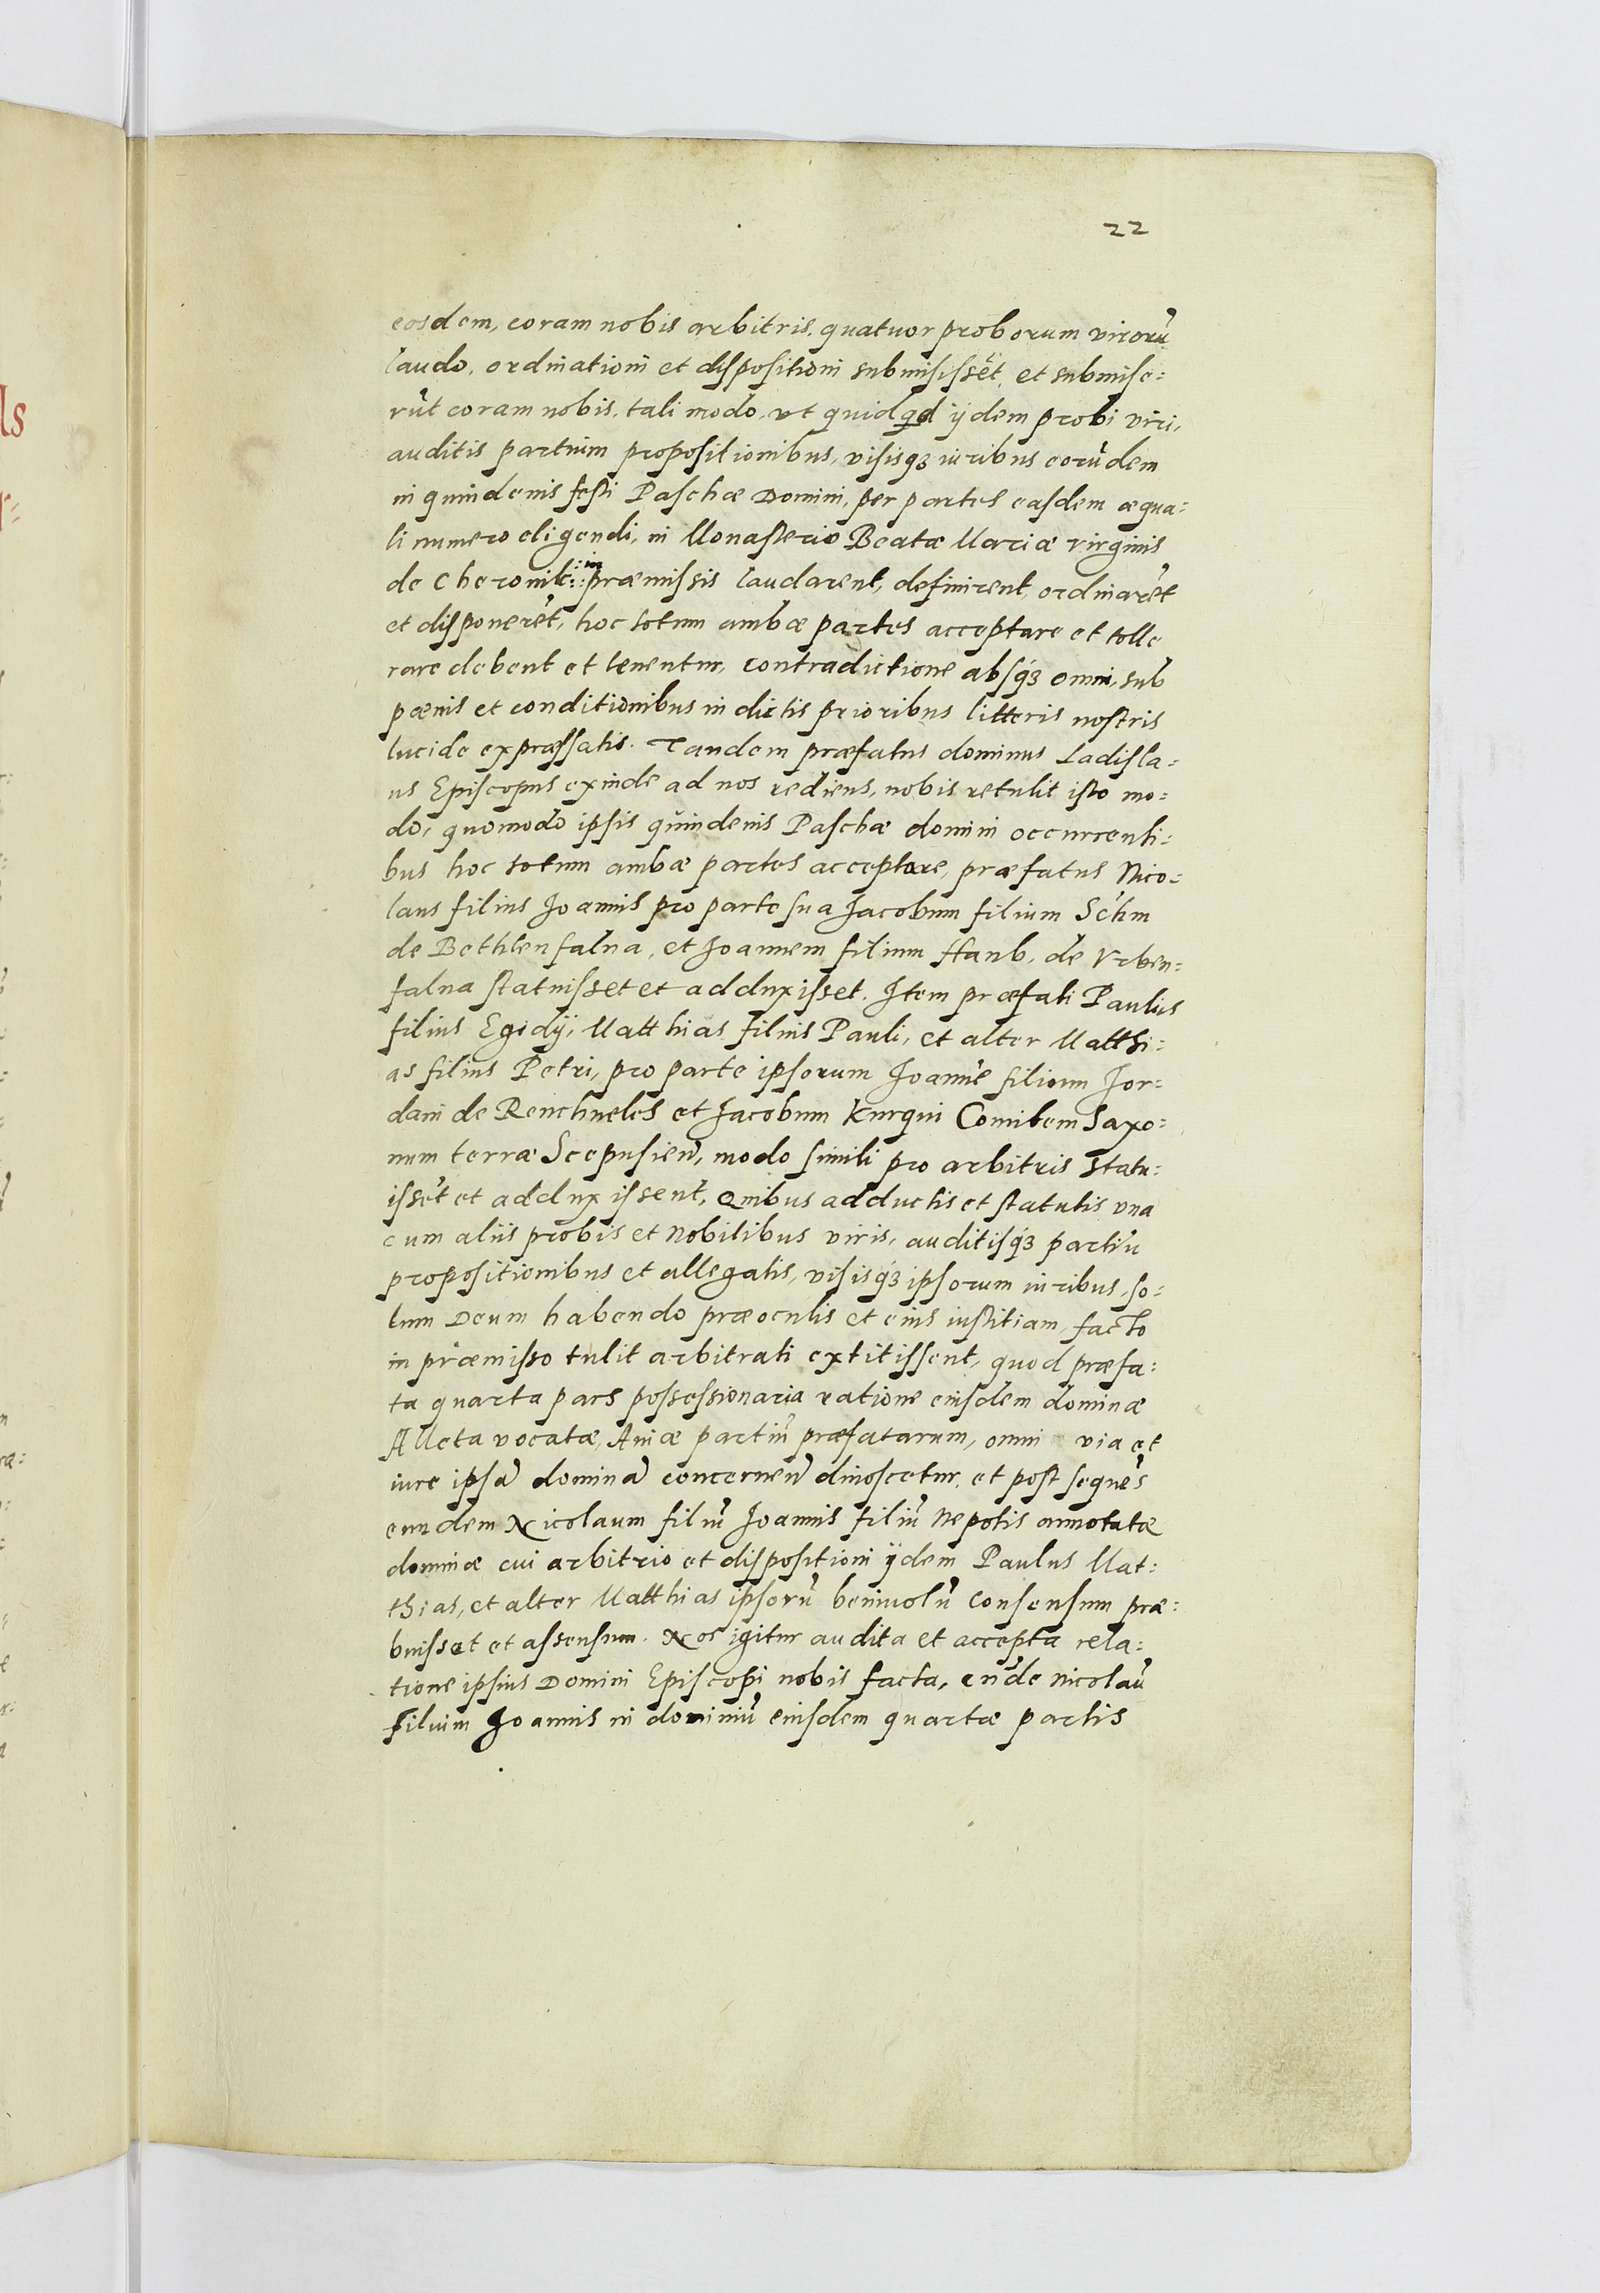 22
eosdem, coram nobis arbitris, quatuor proborum virorũ
laudo, ordinationi et dispositioni submisissẽt, et submise=
rũt coram nobis, tali modo, vt quidqd ijdem probi viri,
auditis partium propositionibus, visisqȝ iuribus eorũdem
in quindenis festi Paschæ Domini, per partes easdem æqua=
li numero eligendi, in Monasterio Beatæ Mariæ virginis
de Cheronik: in præmissis laudarent, definirent, ordinarẽt
et disponerẽt, hoc totum ambæ partes acceptare et tolle
rare debent et tenentur, contradictione absqȝ omni, sub
pœnis et conditionibus in dictis prioribus litteris nostris
lucide expræssatis. Tandem præfatus dominus Ladisla=
us Episcopus exinde ad nos rediens, nobis retulit isto mo=
do, quomodo ipsis quindenis Paschæ domini occurrenti=
bus hoc totum ambæ partes acceptare, præfatus Nico=
laus filius Joannis pro parte sua Jacobum filium Sẽhm
de Bethlenfalua, et Joannem filium Hanb, de Vrben=
falua statuisset et adduxisset. Item præfati Paulus
filius Egidij, Matthias filius Pauli, et alter Matthi=
as filius Petri, pro parte ipsorum Joannẽ filium Jor=
dani de Renchueles et Jacobum Kurqui Comitem Saxo=
num terræ Scepusieñ, modo simili pro arbitris statu=
issẽt et adduxissent, Quibus adductis et statutis vna
cum aliis probis et Nobilibus viris, auditisqȝ partiũ
propositionibus et allegatis, visisqȝ ipsorum iuribus, so=
lum Deum habendo præ oculis et eius iustitiam, facto
in præmisso tulit arbitrati extitissent, quod præfa=
ta quarta pars possessionaria ratione eiusdem dominæ
Alleta vocatæ, Auiæ partiũ præfatarum, omni via et
iure ipsã dominã concerneñ dinoscetur, et post seques
eundem Nicolaum filiũ Joannis filiũ Nepotis annotatæ
dominæ cui arbitrio et dispositioni ijdem Paulus Mat=
thias, et alter Matthias ipsorũ beniuolũ consensum præ=
buisset et assensum. Nos igitur audita et accepta rela=
tione ipsius Domini Episcopi nobis facta, eũde Nicolaũ
filium Joannis in dominiũ eiusdem quartæ partis